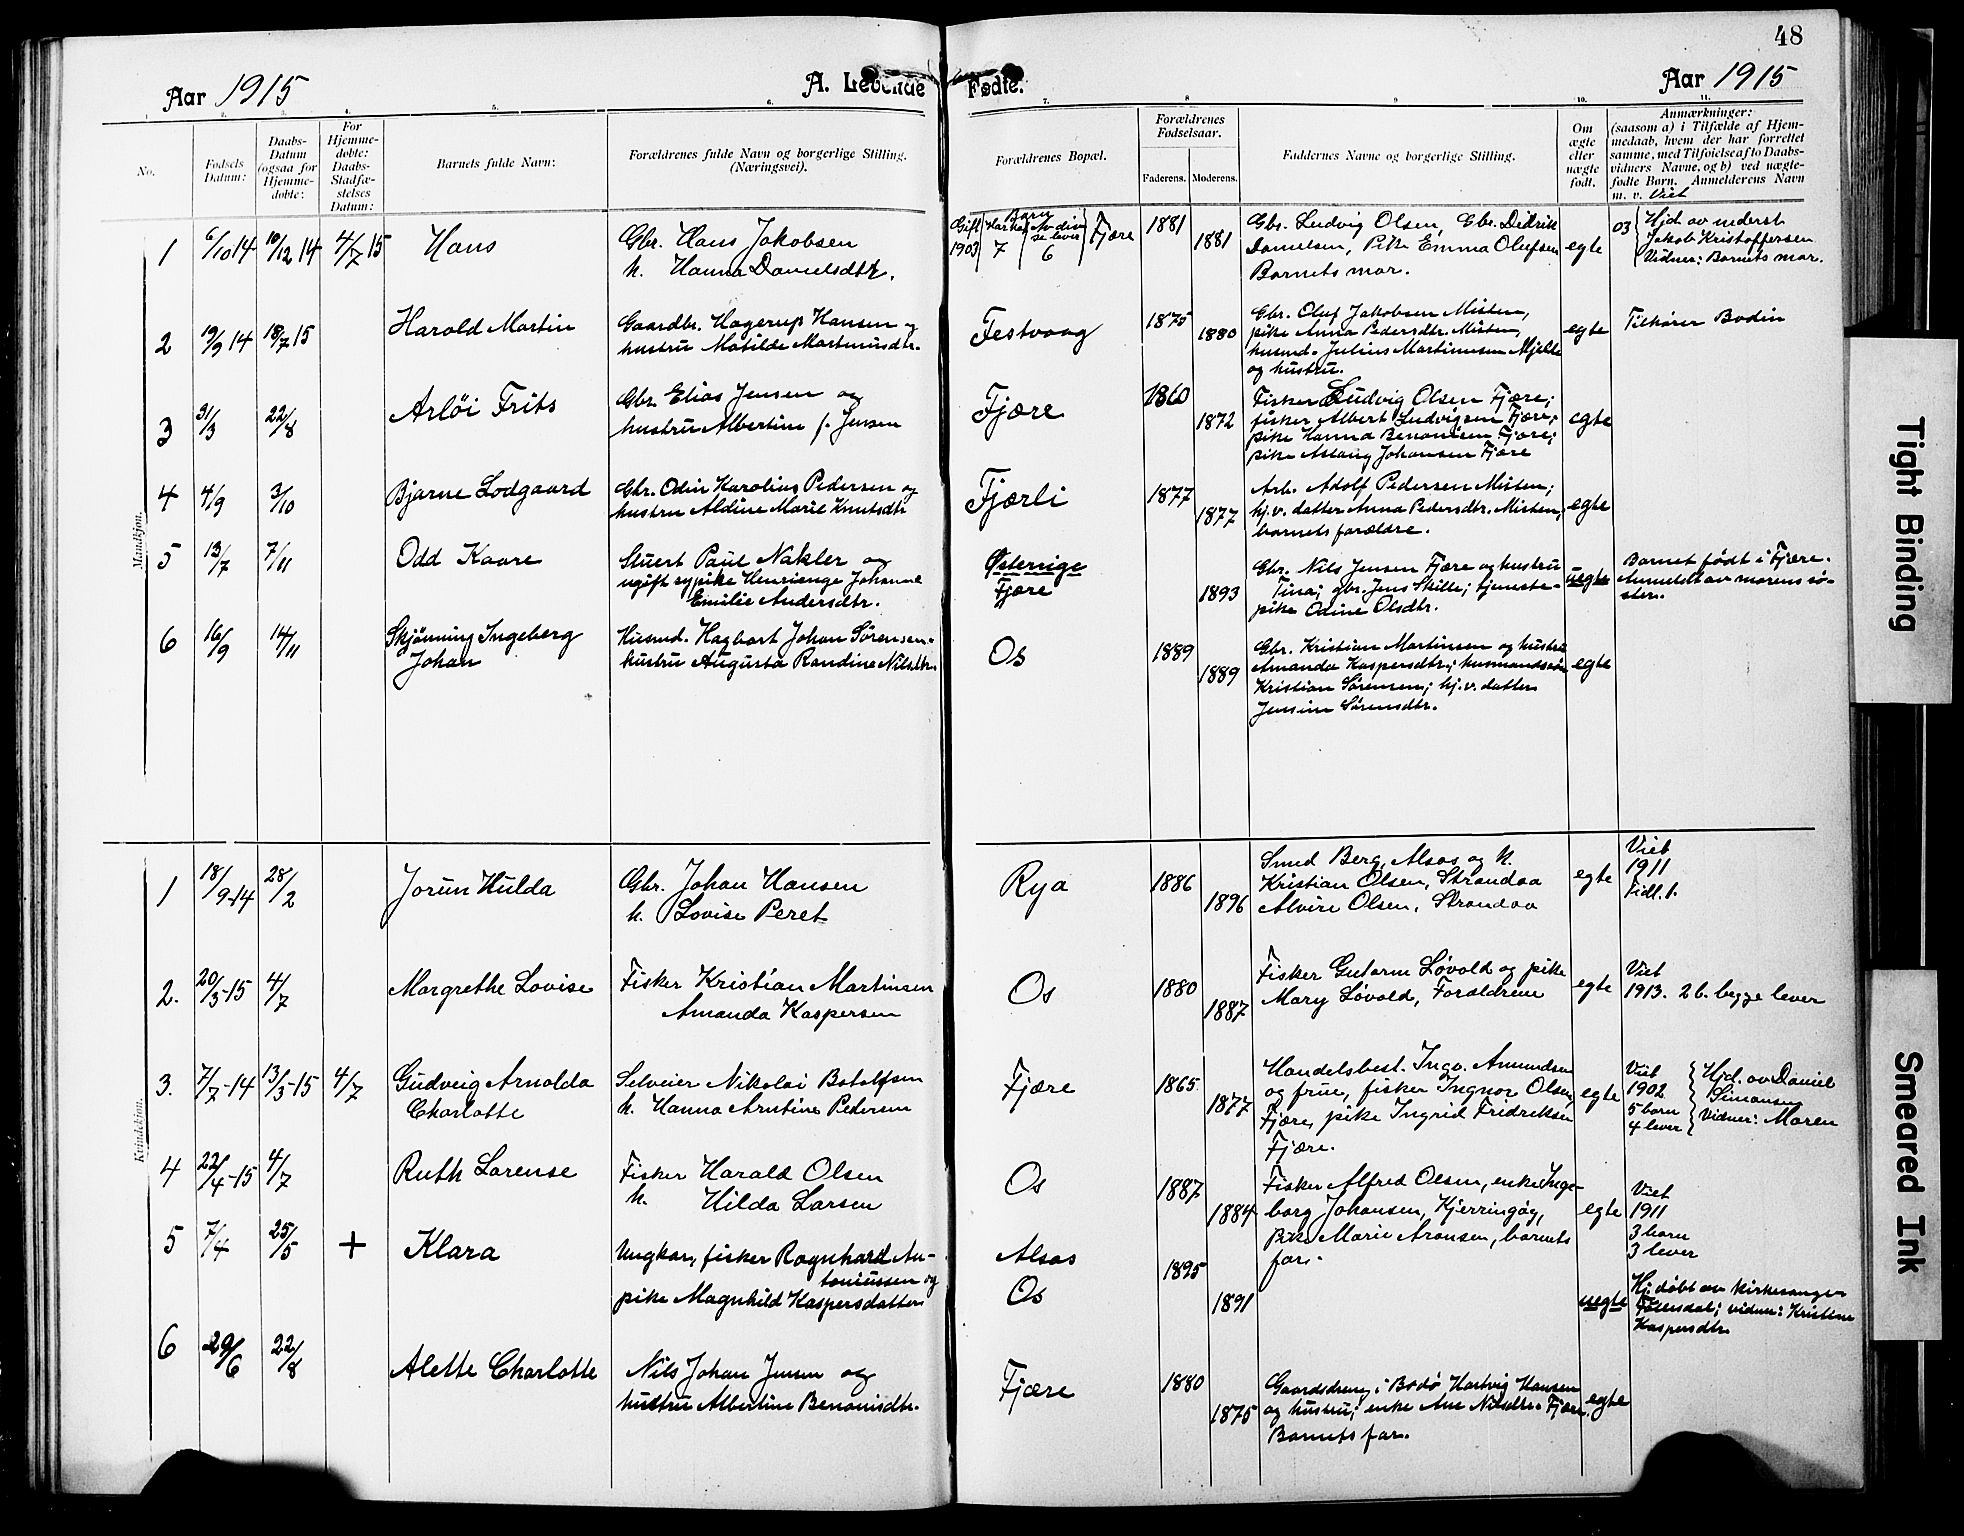 48
Aar 1915
A. Levende Fødte.
Aar 1915
1. 2. 3. 4. 5. 6. 7. 8 9 10. 11.
No.
Fødsels Datum:
Daabs-Datum (ogsaa for Hjemmedøbte:
For Hjemmedøbte: Daabs-Stadfæstelses Datum:
Barnets fulde Navn:
Forældrenes fulde Navn og borgerlige Stilling.
(Næringsvei).
Forældrenes Bopæl.
Forældrenes Fødselsaar.
Faderens. Moderens.
Faddernes Navne og borgerlige Stilling.
Om ægte eller nægte født.
Anmærkninger:
(saasom a) i Tilfælde af Hjem-
medaab, hvem der har forrettet
samme, med Tilføielse af to Daabs-
vidners Navne, og b) ved nægte-
fødte Børn. Anmelderens Navn
m. v. Viet
Mandkjøn.
1 6/10 14 10/12 14 4/7 15 Hans
Gbr. Hans Jakobsen
h. Hanna Danielsdtr.
Gift 1903 Har hat 7 Barn Av disse lever 6 Fjære
1881 1881
Gbr. Ludvig Olsen, Gbr. Didrik
Danielsen, Pike Emma Olufsen
Barnets mor.
egte
03 Hjd. av inderst
Jakob Kristoffersen
Vidner: Barnets mor.
2 19/9 14 18/7 15 Harald Martin
Gaardbr. Hagerup Hansen og
hustru Matilde Martinusdtr.
Festvaag
1875 1880
Gbr. Oluf Jakobsen Misten,
pike Anna Pedersdtr. Misten,
husmd. Julius Martinussen Mjelde
og hustru.
egte
Tilhører Bodin
3 31/3 22/8 Arløi Frits
Gbr. Elias Jensen og
hustru Albertine f. Jensen
Fjære
1860 1872
Fisker Ludvig Olsen Fjære;
fisker Albert Ludvigsen Fjære;
pike Hanna Benonisen Fjære;
pike Aslaug Johansen Fjære
egte
4 4/9 3/10 Bjarne Lodgaard
Gbr. Odin Karolius Pedersen og
hustru Aldine Marie Knutsdtr
Fjærli
1877 1877
Arb. Adolf Pedersen Misten;
hj.v. datter Anna Pedersdtr. Misten,
barnets forældre.
egte
5 13/7 7/11 Odd Kaare
Stuert Paul Nakler og
ugift sypike Henrienge Johanne
Emilie Andersdtr.
Østerrige
Fjære
1893
Gbr. Nils Jensen Fjære og hustru
Tina; gbr. Jens Skille; tjeneste-
pike Odine Olsdtr.
uegte
Barnet født i Fjære.
Anmeldt av morens sø-
ster.
6 16/9 14/11 Skjønning Ingeberg
Johan
Husmd. Hagbart Johan Sørensen.
hustru Augusta Randine Nilsdtr.
Os
1889 1889
Gbr. Kristian Martinsen og hustru
Amanda Kaspersdtr; husmandssøn
Kristian Sørensen; hj.v. datter
Jensine Sørensdtr.
egte
Kvindekjøn.
1 18/9-14 28/2 Jorun Hulda
Gbr. Johan Hansen
h. Lovise Peret
Rya
1886 1896
Smed Berg, Alsos og h.
Kristian Olsen, Strandaa
Alvire Olsen, Strandaa
egte
Viet
1911
2. 20/3-15 4/7 Margrethe Lovise
Fisker Kristian Martinsen
Amanda Kaspersen
Os
1880 1887
Fisker Gutorm Løvold og pike
Mary Løvold, Forældrene
egte
Viet
1913. 2 b. begge lever
3. 7/7-14 13/3-15 4/7 Gudveig Arnolda
Charlotte
Selveier Nikolai Botolfsen
h. Hanna Arntine Pedersen
Fjære
1865 1877
Handelsbest. Ingv. Amundsen
og frue, fisker Ingvor Olsen
Fjære, pike Ingrid Fredriksen
Fjære.
egte
Viet
1902
5 barn
4 lever
Hjd. av Daniel
Simonsen
Vidner: Maren
4 22/4-15 4/7 Ruth Lorense
Fisker Harald Olsen
h. Hilda Larsen
Os
1887 1884
Fisker Alfred Olsen, enke Inge-
borg Johansen, Kjerringøy,
Pike Marie Aronsen, barnets
far.
egte
Viet
1911
3 barn
3 lever
5 7/4 25/5 + Klara
Ungkar, fisker Ragnhard An-
toniussen og
pike Magnhild Kaspersdatter
Alsos
Os
1895 1891
uegte
Hj. døbt av kirkesanger
vidner: Kristine
Kaspersdtr.
6 29/6 22/8 Alette Charlotte
Nils Johan Jensen og
hustru Albertine Benonisdtr.
Fjære
1880 1875
Gaardsdreng i Bodø Hartvig Hansen
og hustru; enke Ane Nilsdtr. Fjære
Barnets far.
egte
Tight Binding
Smeared Ink